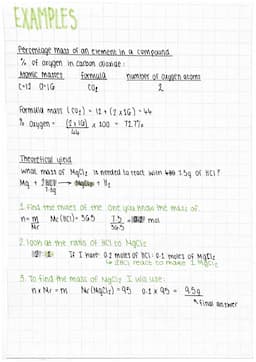 EXAMPLES
Percentage mass of an element in a compound
% of oxygen in carbon dioxide:
Atomic masses formula number of oxygen atoms
C=12 O=16 CO₂ 2
Formula mass (CO₂) = 12 + (2 x 16) = 44
% Oxygen = (2 x 16) x 100 = 72.7%
44
Theoretical yield
What mass of MgCl₂ is needed to react with 7.3g of HCl?
Mg + 2HCl → MgCl₂ + H₂
7.3g
1. Find the moles of the one you know the mass of.
n = m Mr (HCl) = 36.5 7.3 = mol
Mr 36.5
2. look at the ratio of HCl to MgCl₂
If I have 0.2 moles of HCl : 0.1 moles of MgCl₂
2HCl react to make 1 MgCl₂
3. To find the mass of MgCl₂ I will use:
n x Mr = m Mr (MgCl₂) = 95 0.1 x 95 = 9.5g
final answer